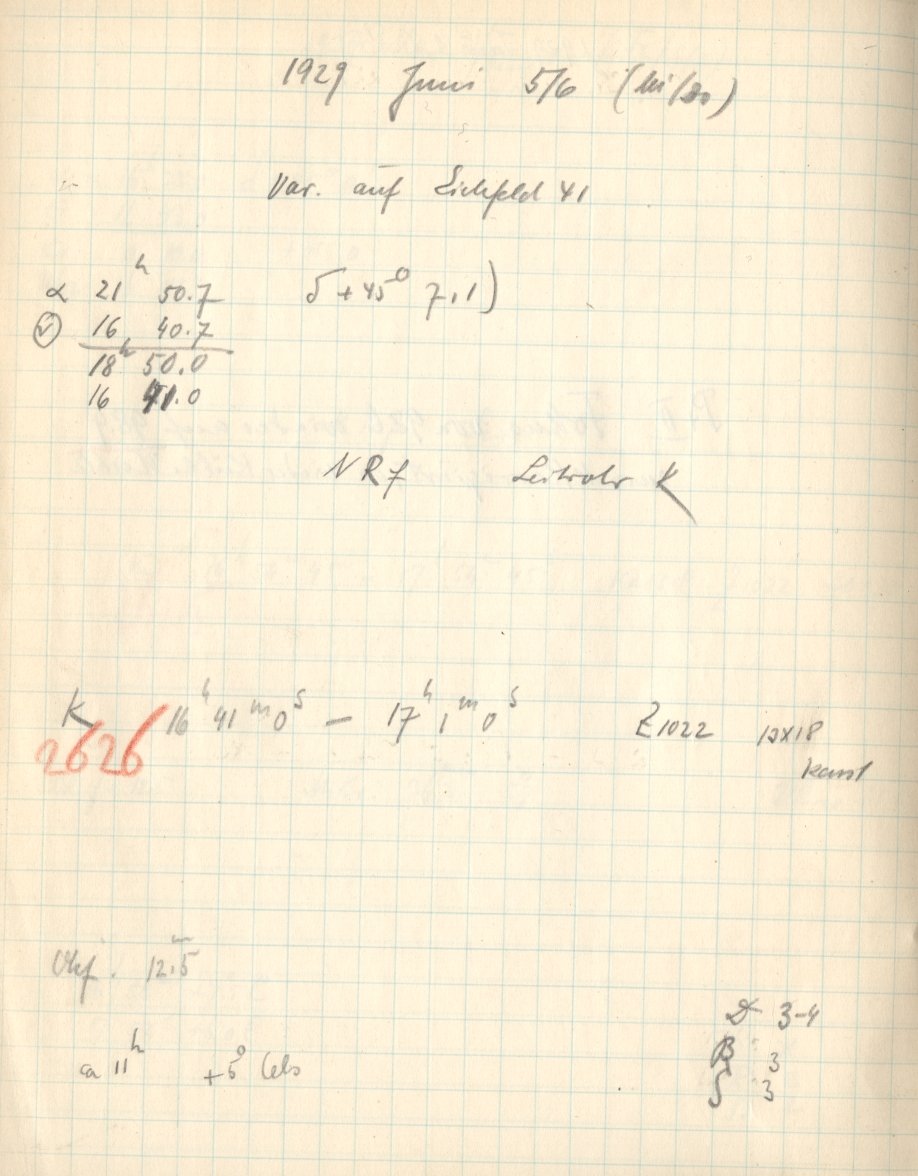 1929 Juni 5/6 (Mi/Do)
Var. auf Eichfeld 41
α 21ʰ 50.7 δ + 45° 7,1)
16 40.7
18ʰ 50.0
16 41.0
NRf Leitrohr K
K 16ʰ 41ᵐ 0ˢ – 17ʰ 1ᵐ 0ˢ Z1022 12X18
2626
12,5
D 3-4
B 3
ca 11ʰ +5° Cels
S 3